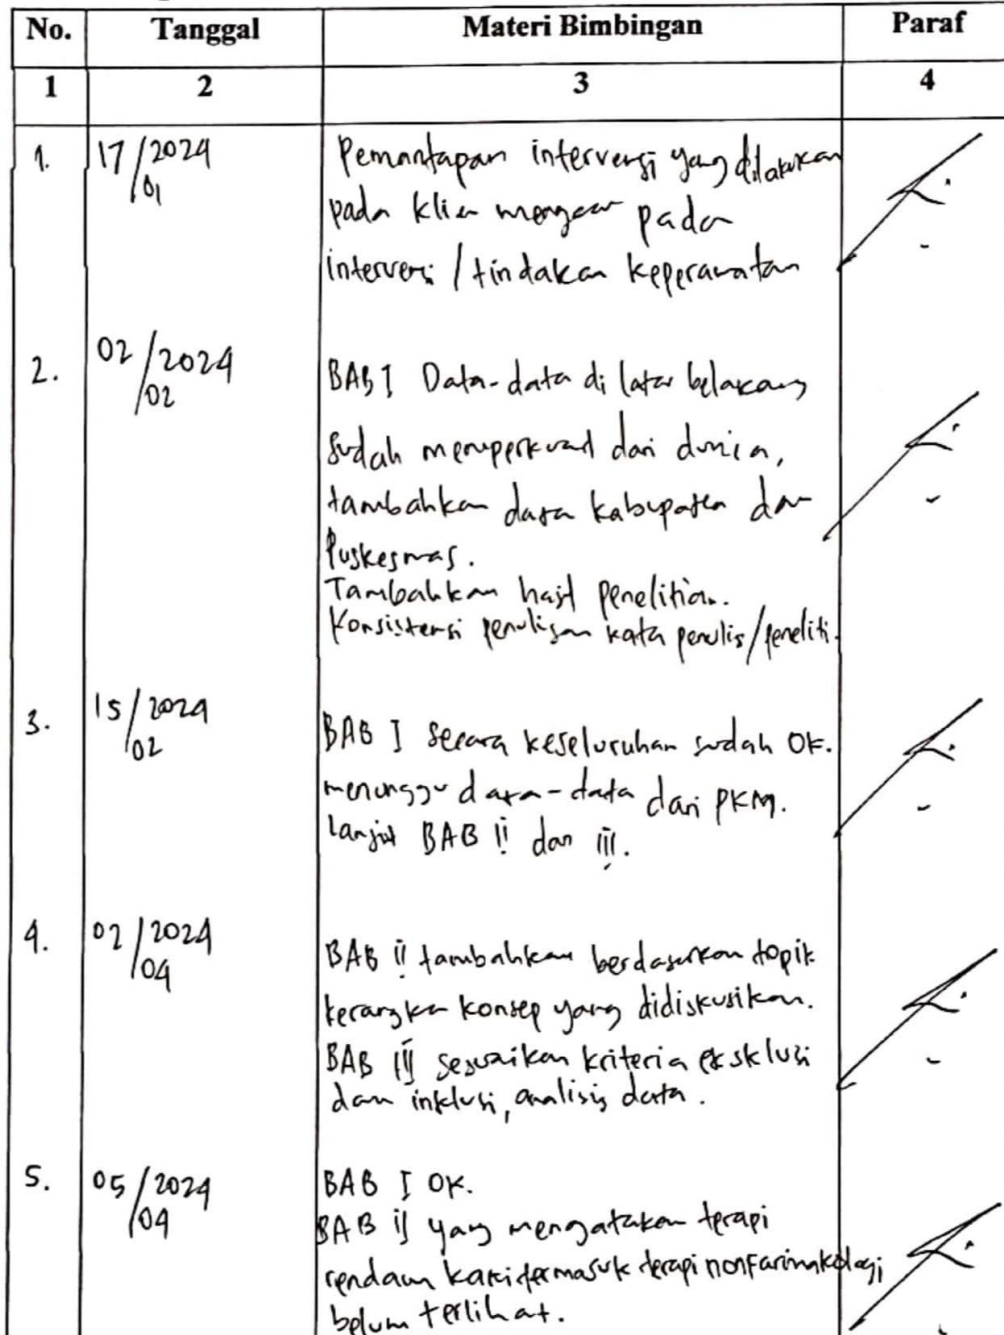 No. Tanggal Materi Bimbingan Paraf
1 2 3 4
1. 17/01 2024 Pemantapan intervensi yang dilakukan
pada klien mengacu pada
intervensi / tindakan keperawatan
2. 02/02 2024 BAB I Data-data di latar belakang
sudah memperkuat dari dunia,
tambahkan data kabupaten dan
Puskesmas.
Tambahkan hasil penelitian.
Konsistensi penulisan kata penulis/peneliti.
3. 15/02 2024 BAB I secara keseluruhan sudah OK.
menunggu data-data dari PKM.
lanjut BAB ii dan iii.
4. 02/04 2024 BAB ii tambahkan berdasarkan topik
kerangka konsep yang didiskusikan.
BAB iii sesuaikan kriteria eksklusi
dan inklusi, analisis data.
5. 05/04 2024 BAB I OK.
BAB ii yang mengatakan terapi
rendam kaki termasuk terapi nonfarmakologi
belum terlihat.